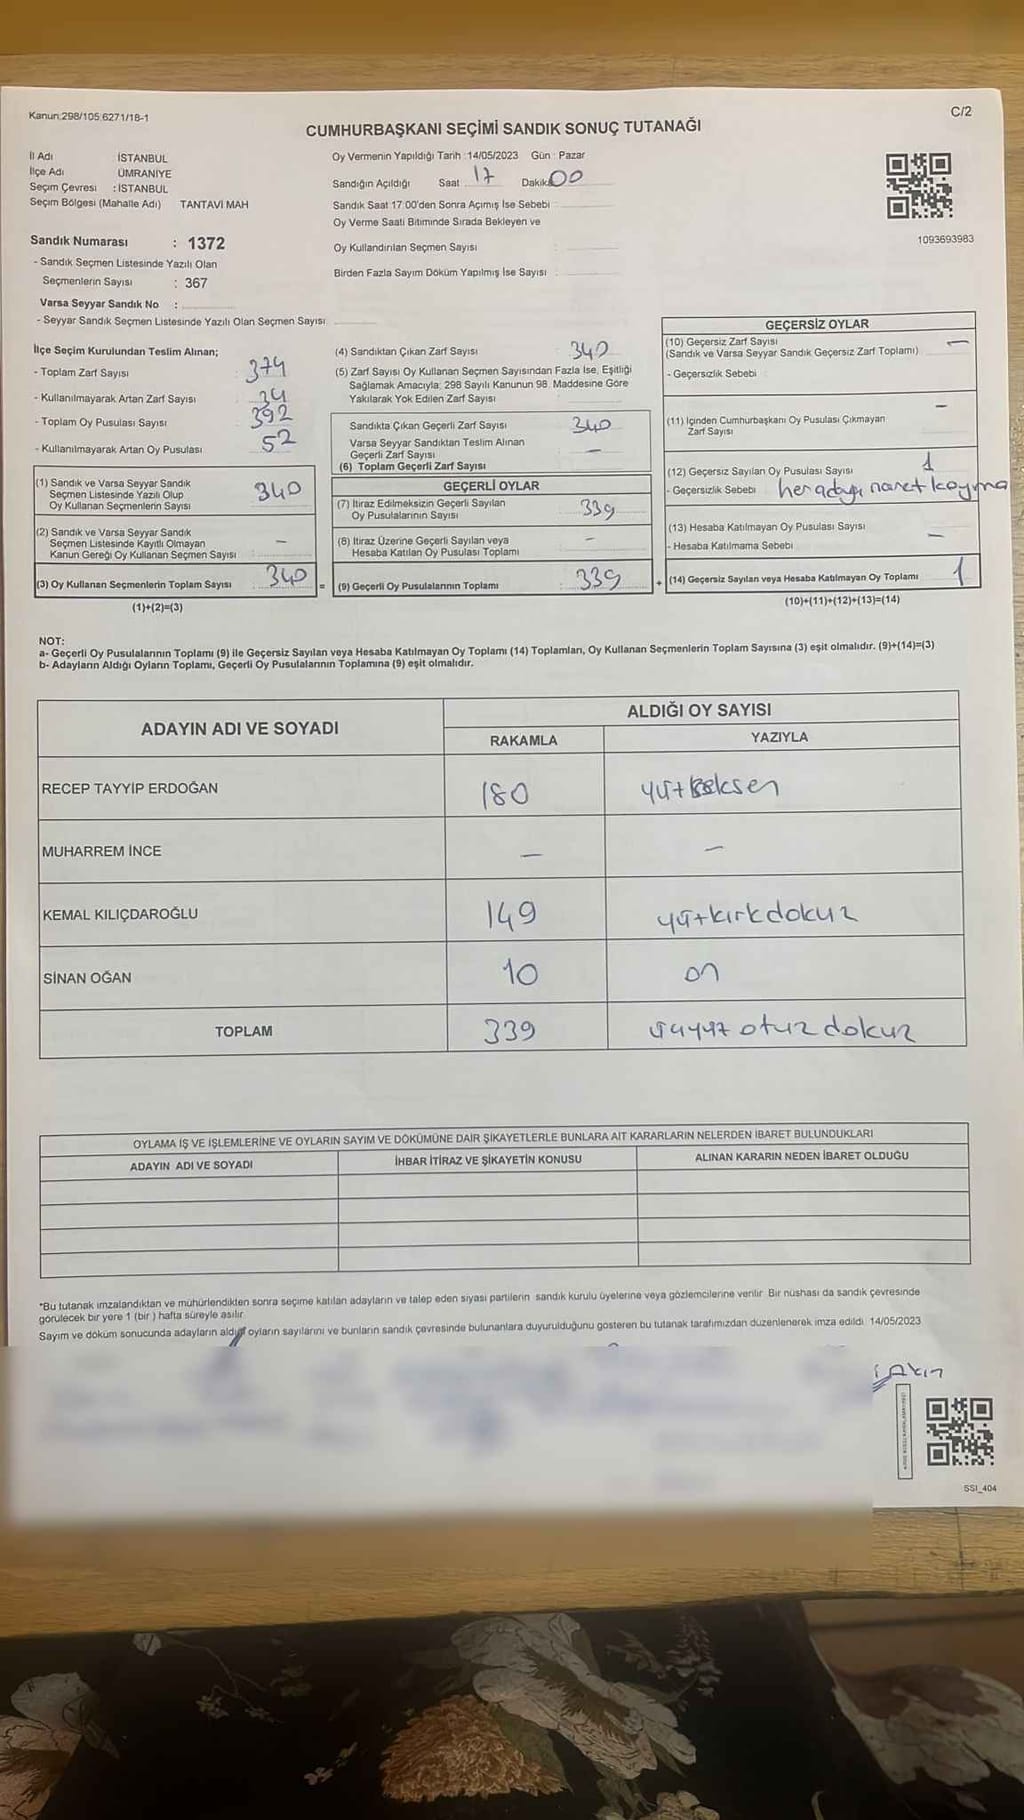 Kanun:298/105,6271/18-1
C/2
CUMHURBAŞKANI SEÇİMİ SANDIK SONUÇ TUTANAĞI
İl Adı İSTANBUL
İlçe Adı ÜMRANİYE
Seçim Çevresi : İSTANBUL
Seçim Bölgesi (Mahalle Adı) TANTAVİ MAH
Sandık Numarası : 1372
- Sandık Seçmen Listesinde Yazılı Olan
Seçmenlerin Sayısı : 367
Varsa Seyyar Sandık No :
- Seyyar Sandık Seçmen Listesinde Yazılı Olan Seçmen Sayısı
Oy Vermenin Yapıldığı Tarih :14/05/2023 Gün : Pazar
Sandığın Açıldığı Saat 17 Dakika 00
Sandık Saat 17:00'den Sonra Açımış İse Sebebi
Oy Verme Saati Bitiminde Sırada Bekleyen ve
Oy Kullandırılan Seçmen Sayısı
Birden Fazla Sayım Döküm Yapılmış İse Sayısı
1093693983
İlçe Seçim Kurulundan Teslim Alınan;
- Toplam Zarf Sayısı 374
- Kullanılmayarak Artan Zarf Sayısı 34
- Toplam Oy Pusulası Sayısı 392
- Kullanılmayarak Artan Oy Pusulası 52
(1) Sandık ve Varsa Seyyar Sandık
Seçmen Listesinde Yazılı Olup
Oy Kullanan Seçmenlerin Sayısı 340
(2) Sandık ve Varsa Seyyar Sandık
Seçmen Listesinde Kayıtlı Olmayan
Kanun Gereği Oy Kullanan Seçmen Sayısı –
(3) Oy Kullanan Seçmenlerin Toplam Sayısı 340 =
(1)+(2)=(3)
(4) Sandıktan Çıkan Zarf Sayısı 340
(5) Zarf Sayısı Oy Kullanan Seçmen Sayısından Fazla İse, Eşitliği
Sağlamak Amacıyla; 298 Sayılı Kanunun 98. Maddesine Göre
Yakılarak Yok Edilen Zarf Sayısı
Sandıkta Çıkan Geçerli Zarf Sayısı 340
Varsa Seyyar Sandıktan Teslim Alınan
Geçerli Zarf Sayısı –
(6) Toplam Geçerli Zarf Sayısı
GEÇERLİ OYLAR
(7) İtiraz Edilmeksizin Geçerli Sayılan
Oy Pusulalarının Sayısı 339
(8) İtiraz Üzerine Geçerli Sayılan veya
Hesaba Katılan Oy Pusulası Toplamı –
(9) Geçerli Oy Pusulalarının Toplamı 339 +
GEÇERSİZ OYLAR
(10) Geçersiz Zarf Sayısı –
(Sandık ve Varsa Seyyar Sandık Geçersiz Zarf Toplamı)
- Geçersizlik Sebebi
(11) İçinden Cumhurbaşkanı Oy Pusulası Çıkmayan –
Zarf Sayısı
(12) Geçersiz Sayılan Oy Pusulası Sayısı 1
- Geçersizlik Sebebi
(13) Hesaba Katılmayan Oy Pusulası Sayısı –
- Hesaba Katılmama Sebebi
(14) Geçersiz Sayılan veya Hesaba Katılmayan Oy Toplamı 1
(10)+(11)+(12)+(13)=(14)
NOT:
a- Geçerli Oy Pusulalarının Toplamı (9) ile Geçersiz Sayılan veya Hesaba Katılmayan Oy Toplamı (14) Toplamları, Oy Kullanan Seçmenlerin Toplam Sayısına (3) eşit olmalıdır. (9)+(14)=(3)
b- Adayların Aldığı Oyların Toplamı, Geçerli Oy Pusulalarının Toplamına (9) eşit olmalıdır.
ADAYIN ADI VE SOYADI
ALDIĞI OY SAYISI
RAKAMLA YAZIYLA
RECEP TAYYİP ERDOĞAN 180 yüzseksen
MUHARREM İNCE – –
KEMAL KILIÇDAROĞLU 149 yüzkırkdokuz
SİNAN OĞAN 10 on
TOPLAM 339 üçyüz otuz dokuz
OYLAMA İŞ VE İŞLEMLERİNE VE OYLARIN SAYIM VE DÖKÜMÜNE DAİR ŞİKAYETLERLE BUNLARA AİT KARARLARIN NELERDEN İBARET BULUNDUKLARI
ADAYIN ADI VE SOYADI İHBAR İTİRAZ VE ŞİKAYETİN KONUSU ALINAN KARARIN NEDEN İBARET OLDUĞU
*Bu tutanak imzalandıktan ve mühürlendikten sonra seçime katılan adayların ve talep eden siyasi partilerin sandık kurulu üyelerine veya gözlemcilerine verilir. Bir nüshası da sandık çevresinde
görülecek bir yere 1 (bir ) hafta süreyle asılır.
Sayım ve döküm sonucunda adayların aldığı oyların sayılarını ve bunların sandık çevresinde bulunanlara duyurulduğunu gösteren bu tutanak tarafımızdan düzenlenerek imza edildi. 14/05/2023
SSI_404